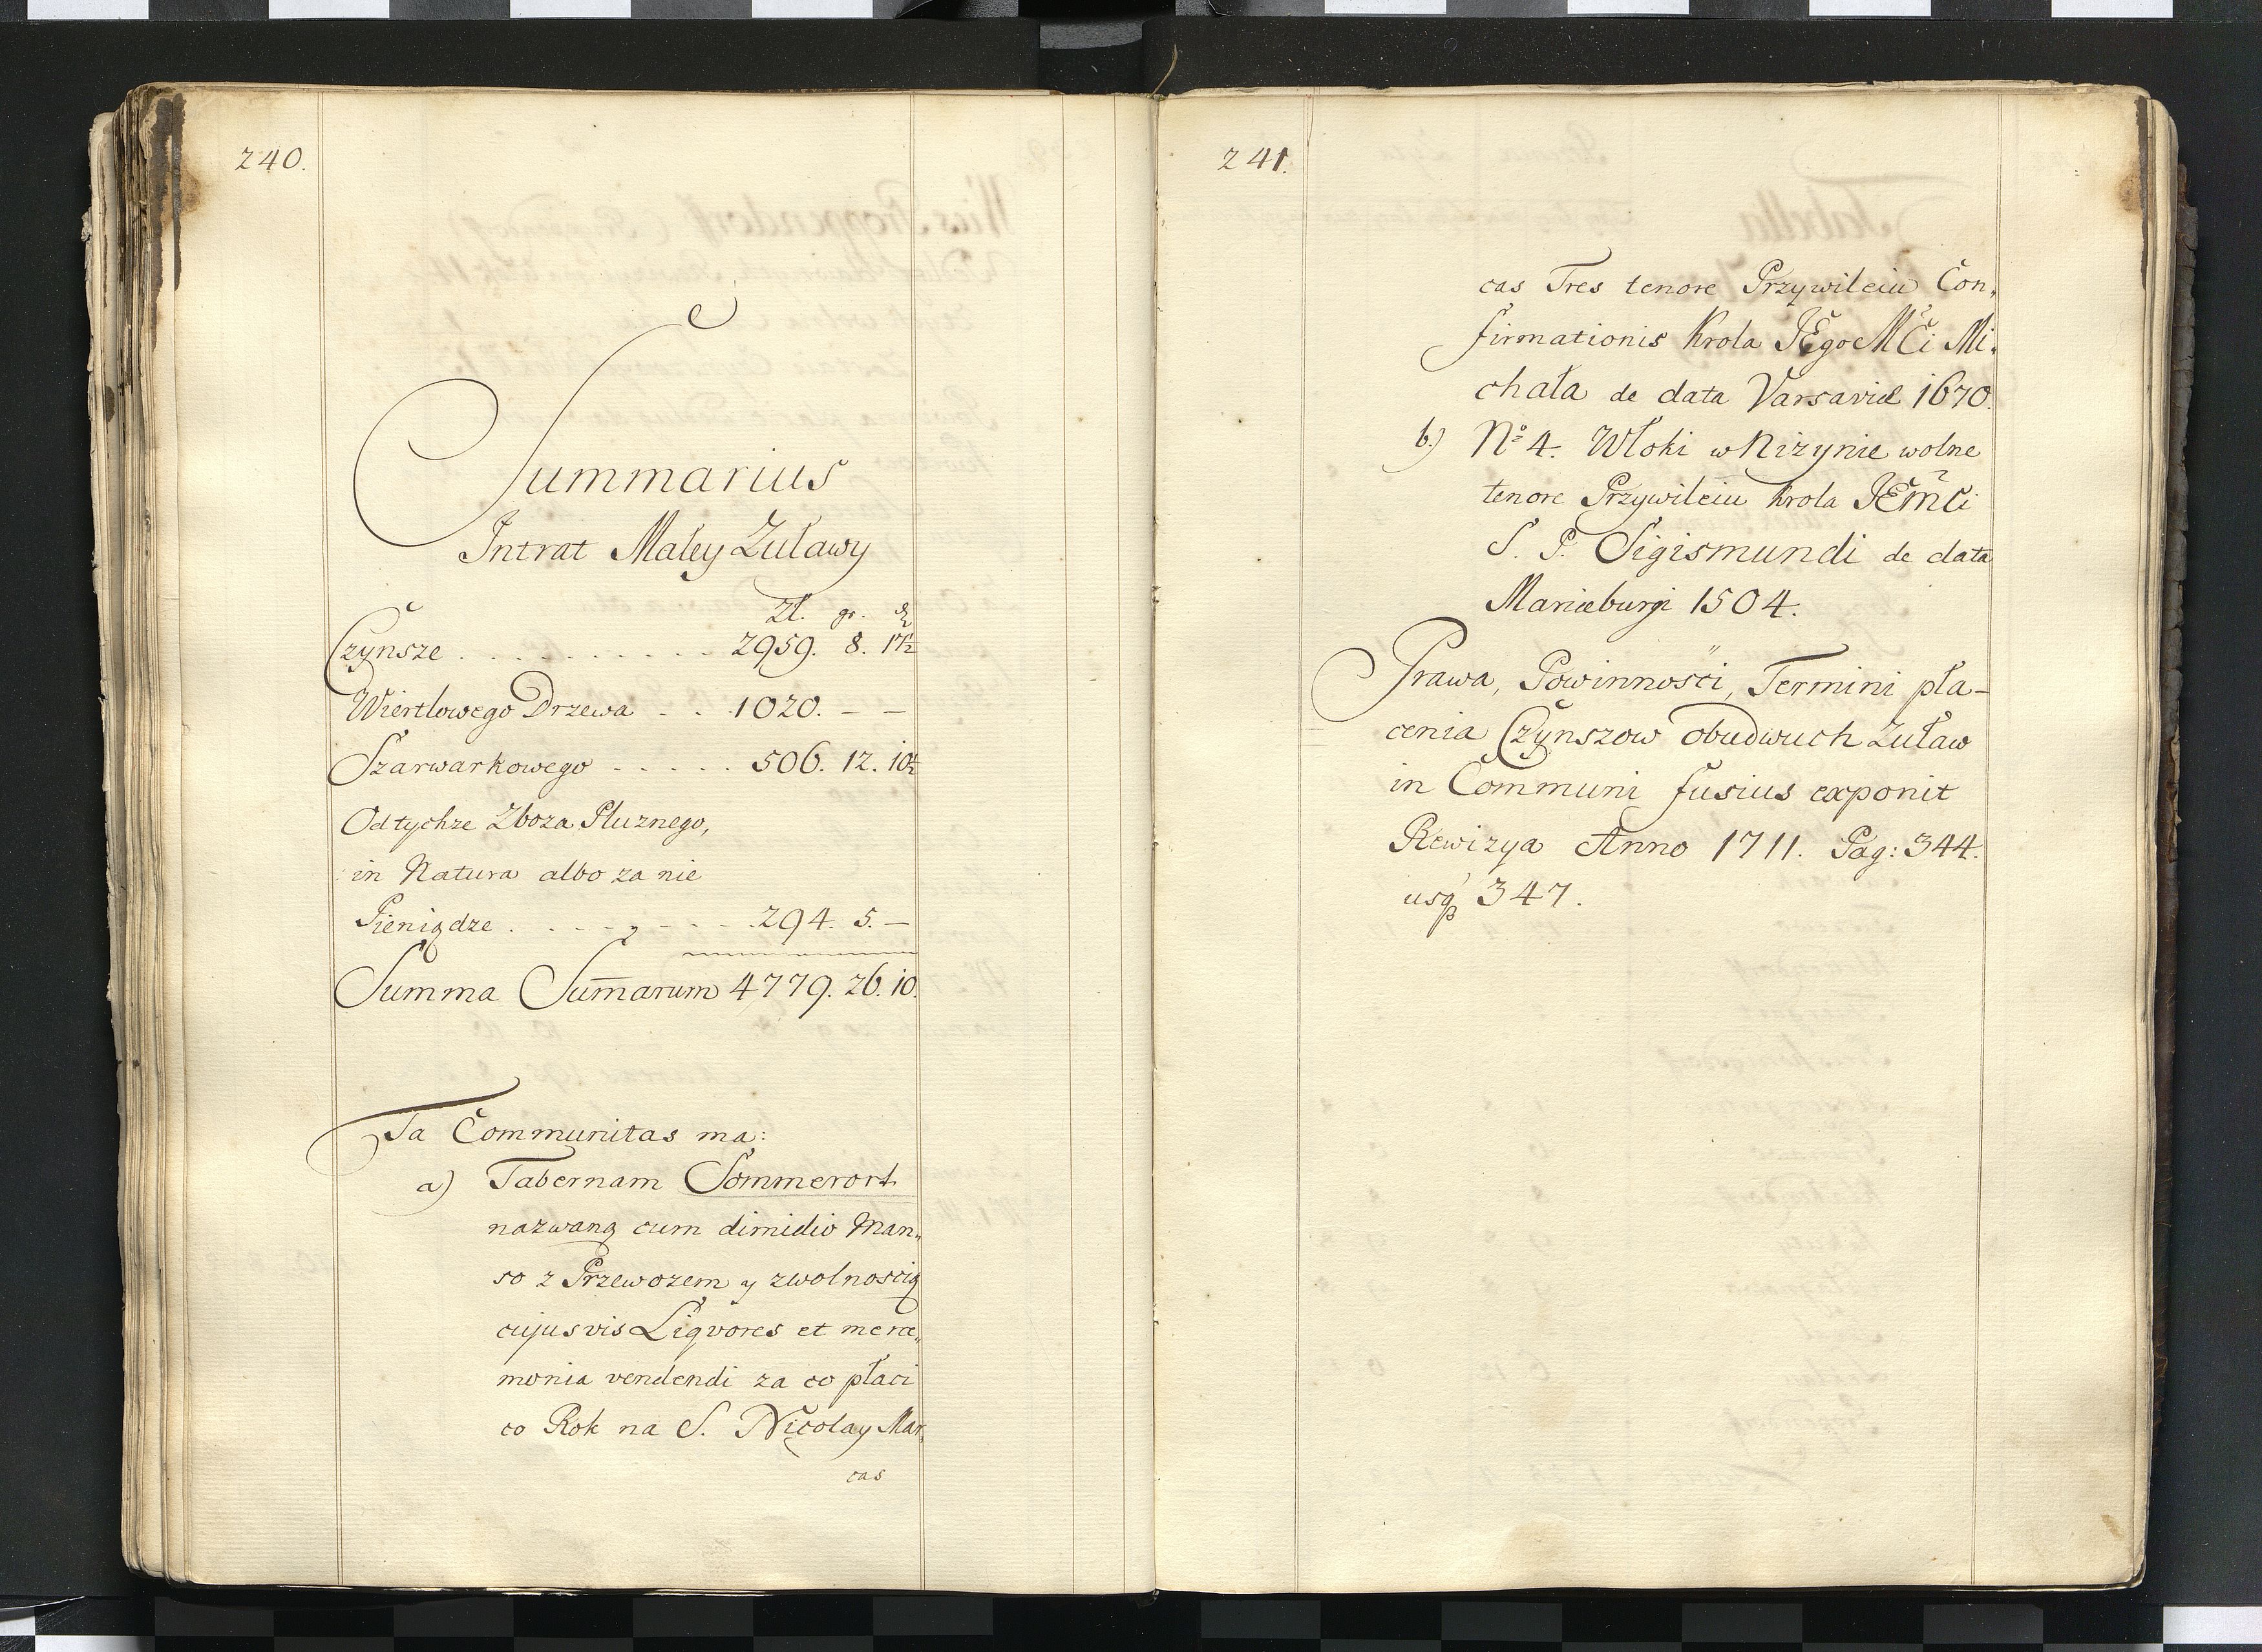 240.
Summarius
Intrat Małey Zuławy
Zł. gr. ₰
Czynsze . . . . . . . . . . 2959. 8. 17½
Wiertlowego Drzewa - . 1020. — —
Szarwarkowego - - - - - 506. 12. 10½
Od tychze Zboza Płuznego,
in Natura albo za nie
Pieniądze . . - - - - - - 294. 5. —
Summa Sum̄arum 4779. 26. 10.
Ta Communitas ma:
a) Tabernam Sommerort
nazwaną cum dimidio Man„
so z Przewozem y zwolnoscią
cujusvis Liqvores et merce„
monia vendendi za co płaci
co Rok na S. Nicolay Mar„
cas
241.
cas Tres tenore Przywileiu Con„
firmationis Krola JEgo MCi Mi„
chała de data Varsaviæ 1670.
b.) Nº 4. Włoki w Nizynie wolne
tenore Przywileiu Krola JEmCi
S. P. Sigismundi de data
Mariæburgi 1504.
Prawa, Powinnosci, Termini pła-
cenia Czynszow obudwuch Zuław
in Communi fusius exponit
Rewizya Anno 1711. Pag: 344.
usq 347.